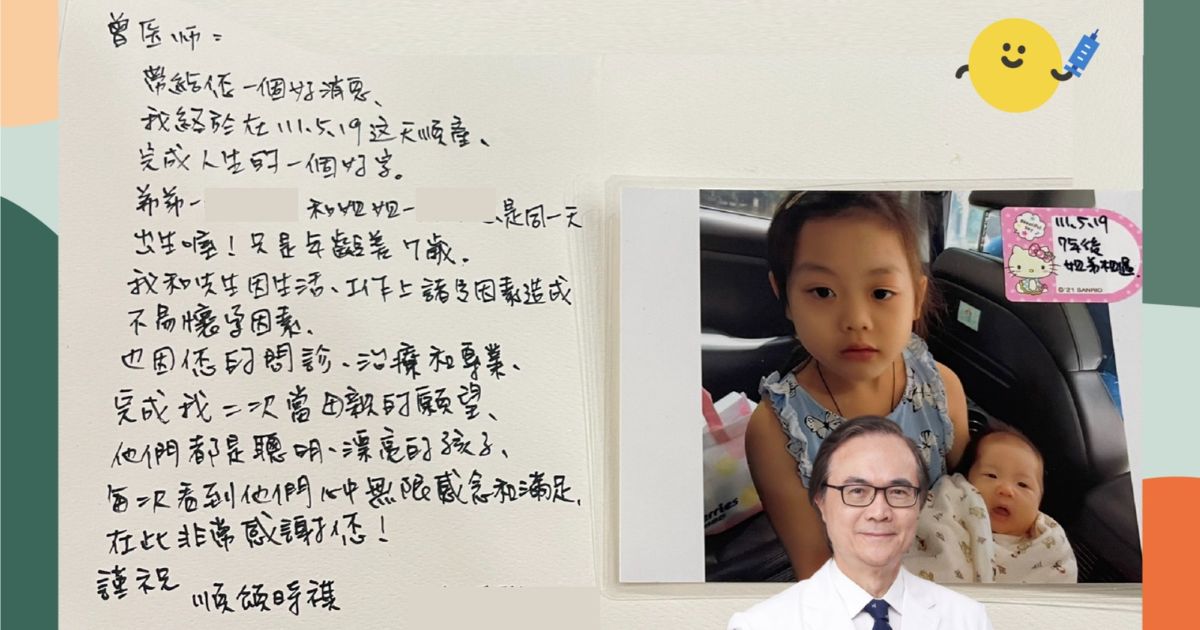 曾医师:
帶給您一個好消息、
我終於在111.5.19这天順產、
完成人生的一個好字。
弟弟- 和姐姐- 是同一天
出生喔!只是年齡差7歲.
我和先生因生活、工作上諸多因素造成
不易懷孕因素.
也因您的問診、治療和專業、
完成我二次當母親的願望、
他們都是聰明、漂亮的孩子、
每次看到他們心中無限感念和滿足,
在此非常感謝您!
謹祝
順頌時祺
111.5.19
7年後
姐弟相遇
©'21 SANRIO
erries